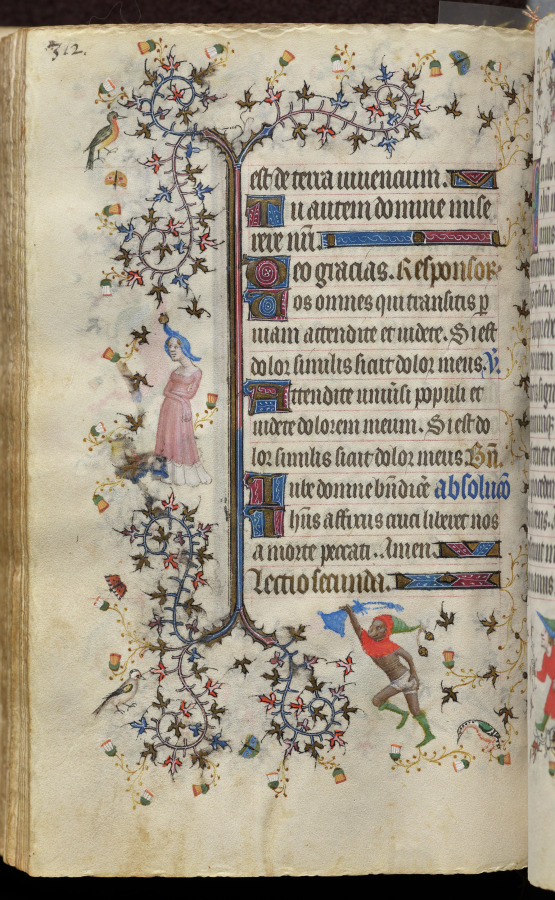 312.
est de terra viuencium.
Tu autem domine mise
rere nr̃i.
Deo gracias. Responsor̃
Uos omnes qui transitis p
uiam attendite et uidete. Si est
dolor similis sicut dolor meus. V̷.
Attendite uniũsi populi et
uidete dolorem meum. Si est do
lor similis sicut dolor meus Bñ.
Iube domne bñdicẽ absolucõ
Ihũs affixus cruci liberet nos
a morte peccati. Amen.
Lectio secunda.